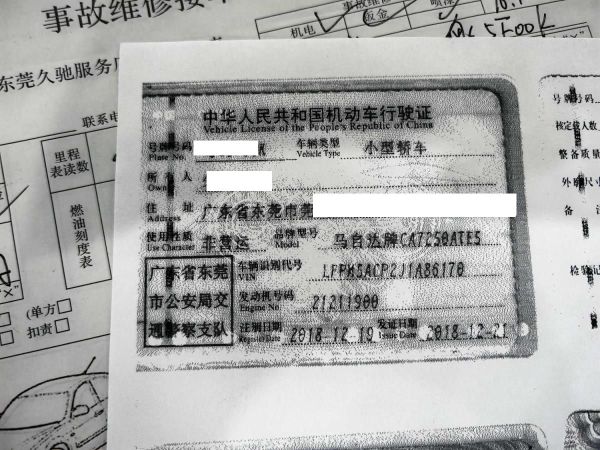 事故维修接
事故维修
机电
钣金
喷漆
东莞久驰服务
联系电
里程
表读数
燃油刻度表
(单方
扣责
中华人民共和国机动车行驶证
Vehicle License of the People's Republic of China
号牌号码
Plate No.
车辆类型
Vehicle Type
小型轿车
所有人
Owner
住址
Address
广东省东莞市莞
使用性质
Use Character
非营运
品牌型号
Model
马自达牌CA7250ATE5
广东省东莞
市公安局交
通警察支队
车辆识别代号
VIN
LFPM5ACP2J1A86170
发动机号码
Engine No.
21211900
注册日期
Register Date
2018-12-19
发证日期
Issue Date
2018-12-21
号牌号码
核定载人数
整备质量
外廓尺寸
备
检验记